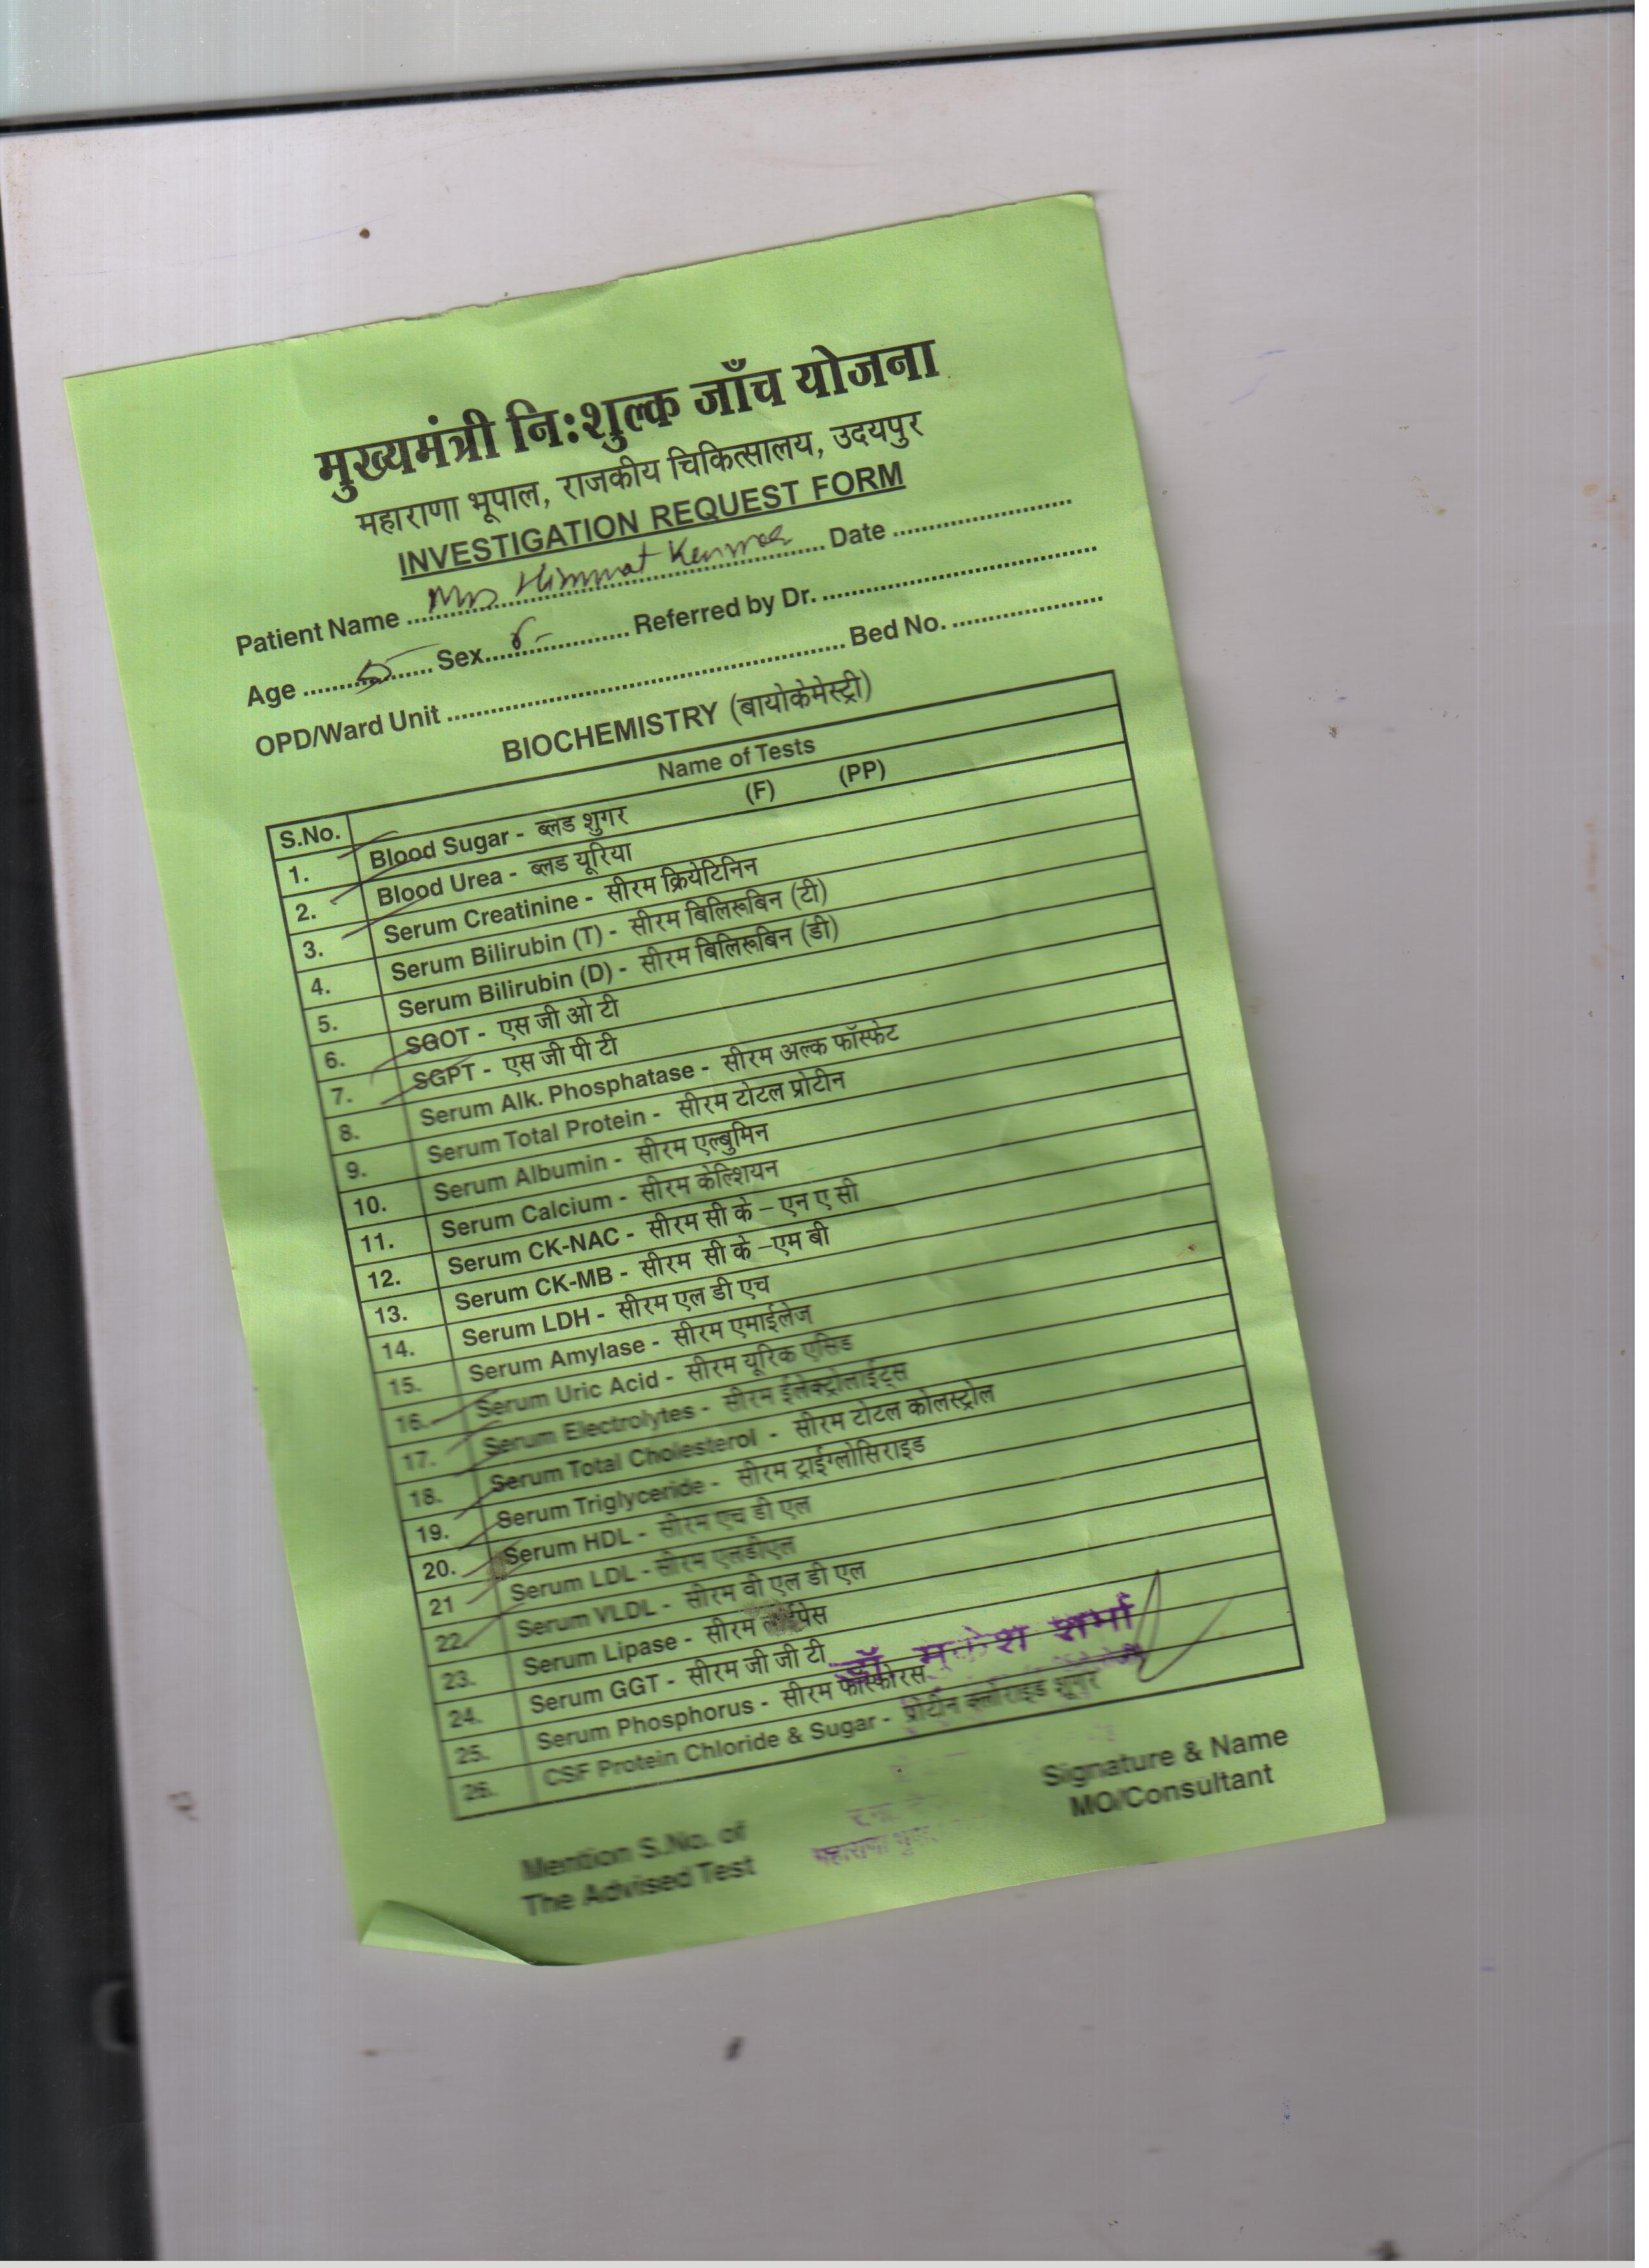 मुख्यमंत्री निःशुल्क जाँच योजना
महाराणा भूपाल, राजकीय चिकित्सालय, उदयपुर
INVESTIGATION REQUEST FORM
Patient Name .......... Himmat .......... Date ..........
Age .......... Sex .......... Referred by Dr. ..........
OPD/Ward Unit .......... Bed No. ..........
BIOCHEMISTRY (बायोकेमेस्ट्री)
S.No. Name of Tests
1. Blood Sugar - ब्लड शुगर (F) (PP)
2. Blood Urea - ब्लड यूरिया
3. Serum Creatinine - सीरम क्रियेटिनिन
4. Serum Bilirubin (T) - सीरम बिलिरूबिन (टी)
5. Serum Bilirubin (D) - सीरम बिलिरूबिन (डी)
6. SGOT - एस जी ओ टी
7. SGPT - एस जी पी टी
8. Serum Alk. Phosphatase - सीरम अल्क फॉस्फेट
9. Serum Total Protein - सीरम टोटल प्रोटीन
10. Serum Albumin - सीरम एल्बुमिन
11. Serum Calcium - सीरम केल्शियन
12. Serum CK-NAC - सीरम सी के – एन ए सी
13. Serum CK-MB - सीरम सी के –एम बी
14. Serum LDH - सीरम एल डी एच
15. Serum Amylase - सीरम एमाईलेज
16. Serum Uric Acid - सीरम यूरिक एसिड
17. Serum Electrolytes - सीरम ईलेक्ट्रोलाईट्स
18. Serum Total Cholesterol - सीरम टोटल कोलस्ट्रोल
19. Serum Triglyceride - सीरम ट्राईग्लोसिराइड
20. Serum HDL - सीरम एच डी एल
21 Serum LDL - सीरम एलडीएल
22. Serum VLDL - सीरम वी एल डी एल
23. Serum Lipase - सीरम
24. Serum GGT - सीरम जी जी टी
25. Serum Phosphorus - सीरम फॉस्फोरस
26. CSF Protein Chloride & Sugar - प्रोटीन क्लोराइड शूगर
डॉ. मुकेश शर्मा
Signature & Name
MO/Consultant
Mention S.No. of
The Advised Test